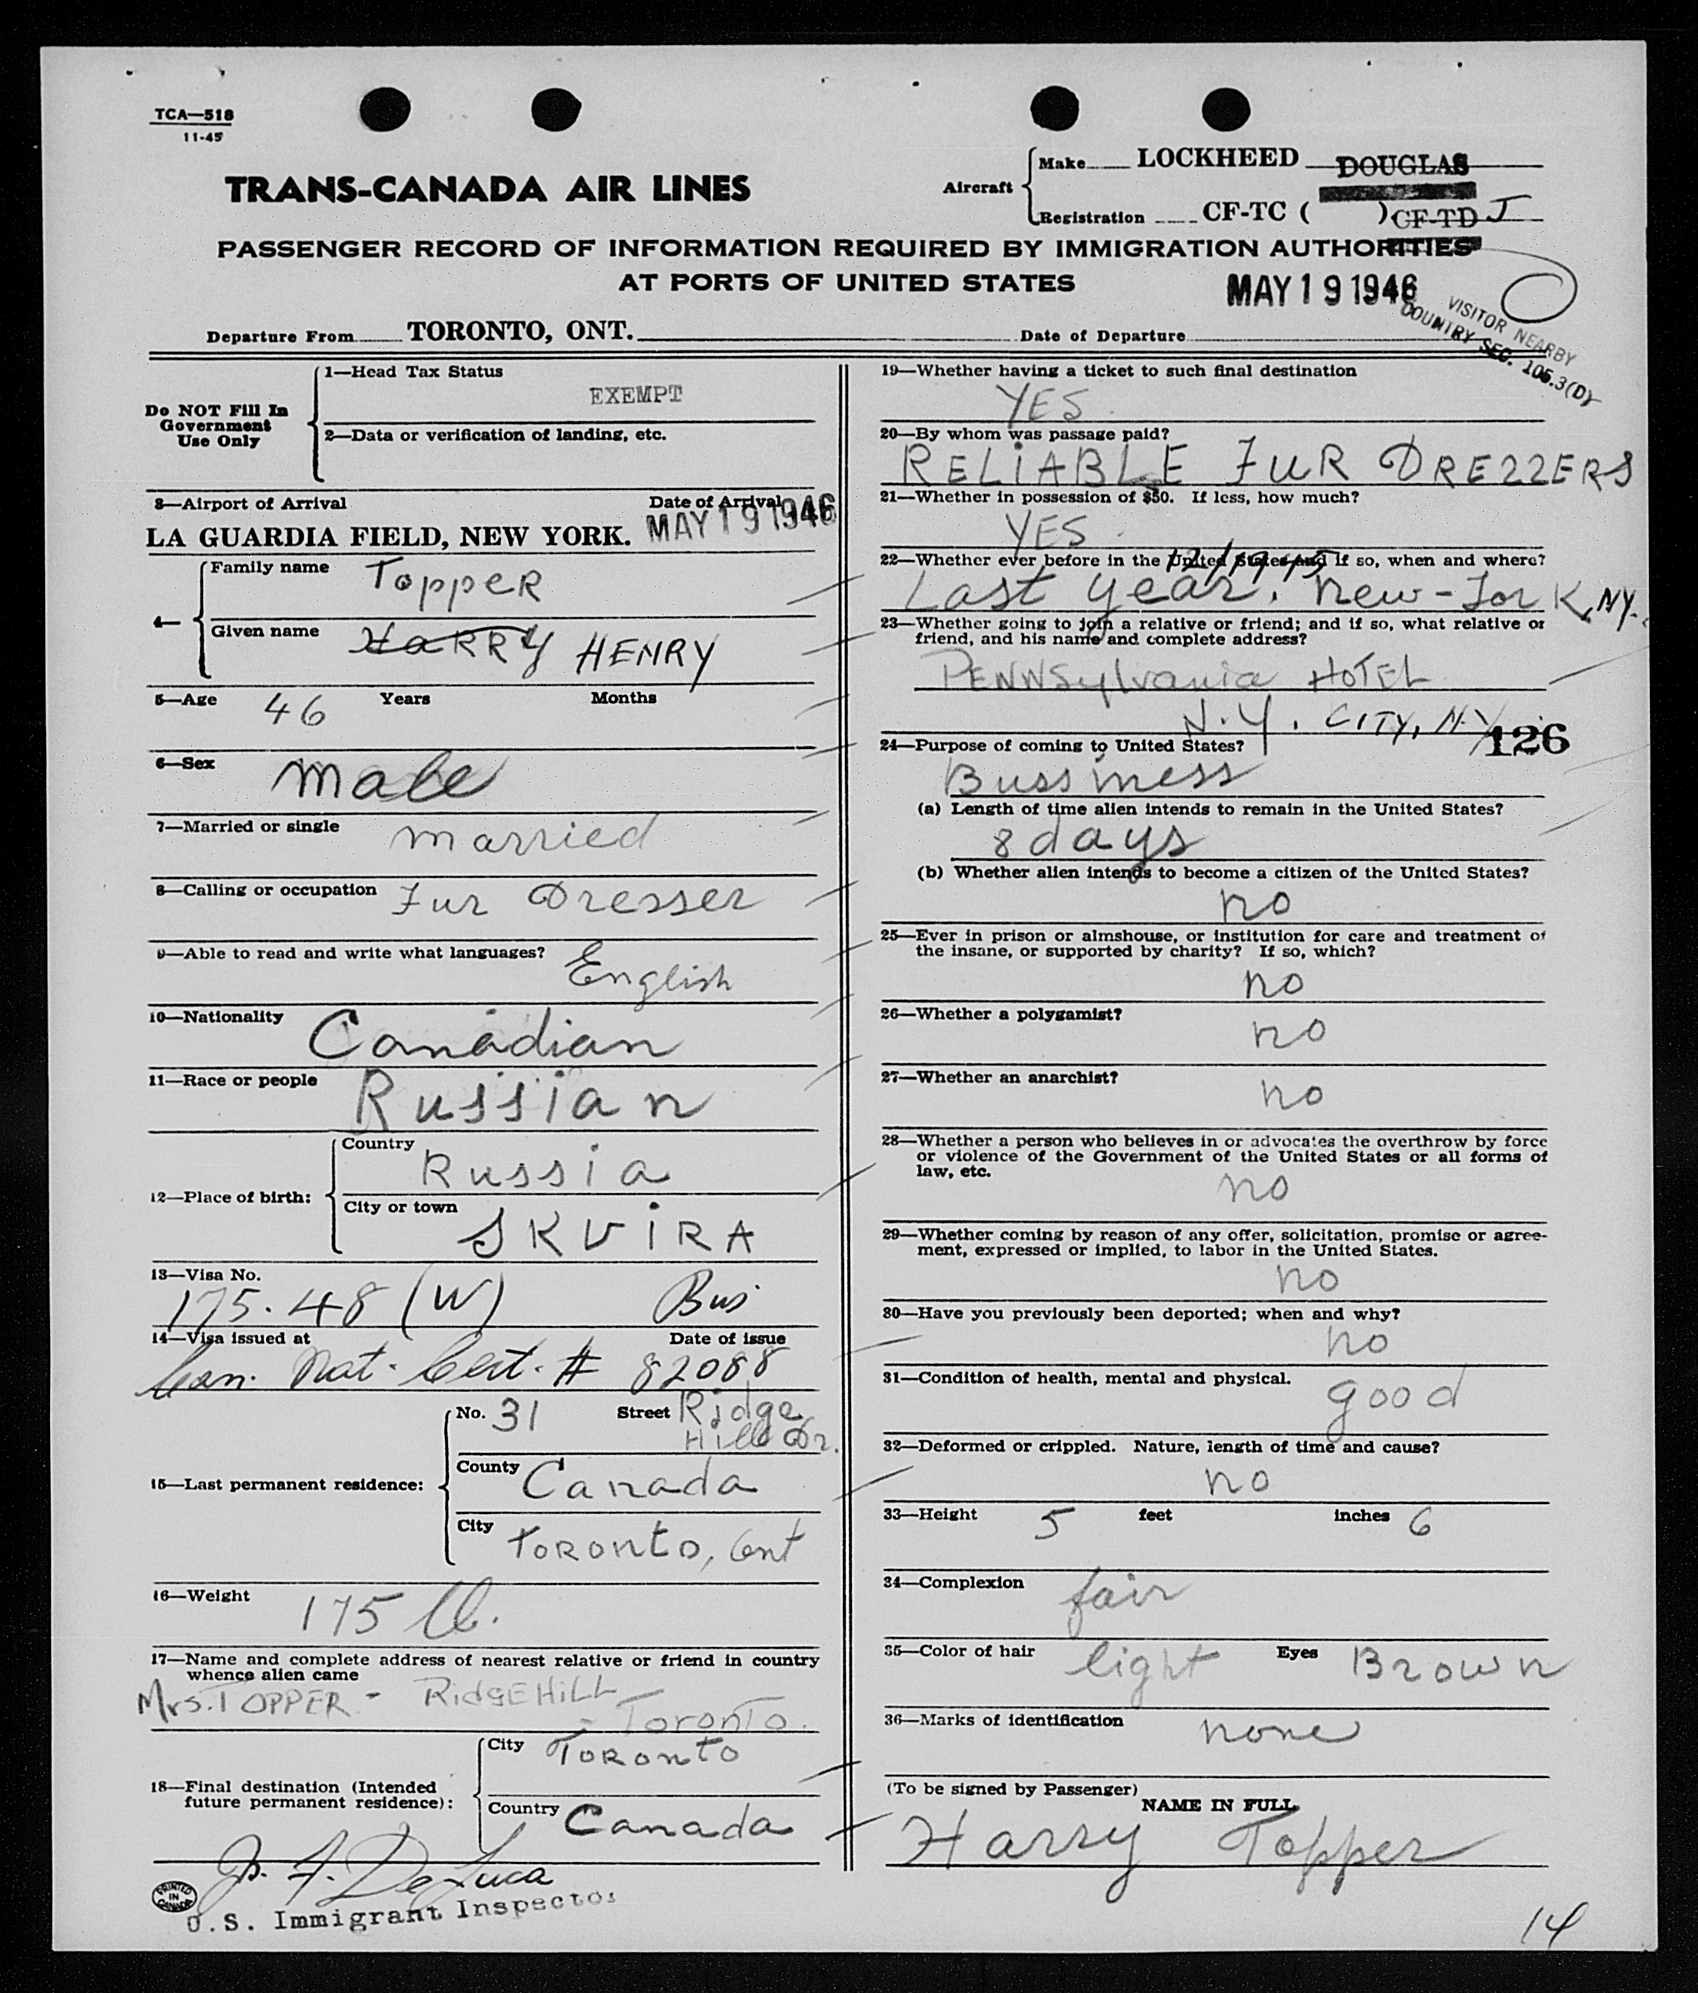 TCA—518
11-45
TRANS-CANADA AIR LINES
Aircraft
Make LOCKHEED DOUGLAS
Registration CF-TC ( ) CF-TD J
PASSENGER RECORD OF INFORMATION REQUIRED BY IMMIGRATION AUTHORITIES
AT PORTS OF UNITED STATES
MAY 19 1946
VISITOR NEARBY
COUNTRY SEC. 105.3(D)
Departure From TORONTO, ONT. Date of Departure
Do NOT Fill In
Government
Use Only
1—Head Tax Status
EXEMPT
2—Data or verification of landing, etc.
3—Airport of Arrival Date of Arrival
LA GUARDIA FIELD, NEW YORK. MAY 19 1946
4—
Family name Topper
Given name HaRRY HENRY
5—Age 46 Years Months
6—Sex male
7—Married or single married
8—Calling or occupation Fur Dresser
9—Able to read and write what languages? English
10—Nationality Canadian
11—Race or people Russian
12—Place of birth:
Country Russia
City or town SKViRA
13—Visa No.
175.48 (W) Bus
14—Visa issued at Date of issue
Can. Nat. Cert. # 82088
15—Last permanent residence:
No. 31 Street Ridge
Hill Dr.
County Canada
City Toronto, Ont
16—Weight 175 lb.
17—Name and complete address of nearest relative or friend in country
whence alien came
Mrs. TOPPER - RidgE HiLL
- Toronto.
18—Final destination (Intended
future permanent residence):
City Toronto
Country Canada
De Luca
PRINTED
IN
CANADA
U.S. Immigrant Inspector
19—Whether having a ticket to such final destination
YES
20—By whom was passage paid?
RELiABLE FUR DRESSERS
21—Whether in possession of $50. If less, how much?
YES
22—Whether ever before in the United States and if so, when and where?
12/1945
Last year, New-York, NY.
23—Whether going to join a relative or friend; and if so, what relative or
friend, and his name and complete address?
PENNSylvania HOTEL
N.Y. CITY, N.Y.
126
24—Purpose of coming to United States?
Bussiness
(a) Length of time alien intends to remain in the United States?
8 days
(b) Whether alien intends to become a citizen of the United States?
no
25—Ever in prison or almshouse, or institution for care and treatment of
the insane, or supported by charity? If so, which?
no
26—Whether a polygamist?
no
27—Whether an anarchist?
no
28—Whether a person who believes in or advocates the overthrow by force
or violence of the Government of the United States or all forms of
law, etc.
no
29—Whether coming by reason of any offer, solicitation, promise or agree-
ment, expressed or implied, to labor in the United States.
no
30—Have you previously been deported; when and why?
no
31—Condition of health, mental and physical.
good
32—Deformed or crippled. Nature, length of time and cause?
no
33—Height 5 feet inches 6
34—Complexion fair
35—Color of hair light Eyes Brown
36—Marks of identification none
(To be signed by Passenger)
NAME IN FULL
Harry Topper
14